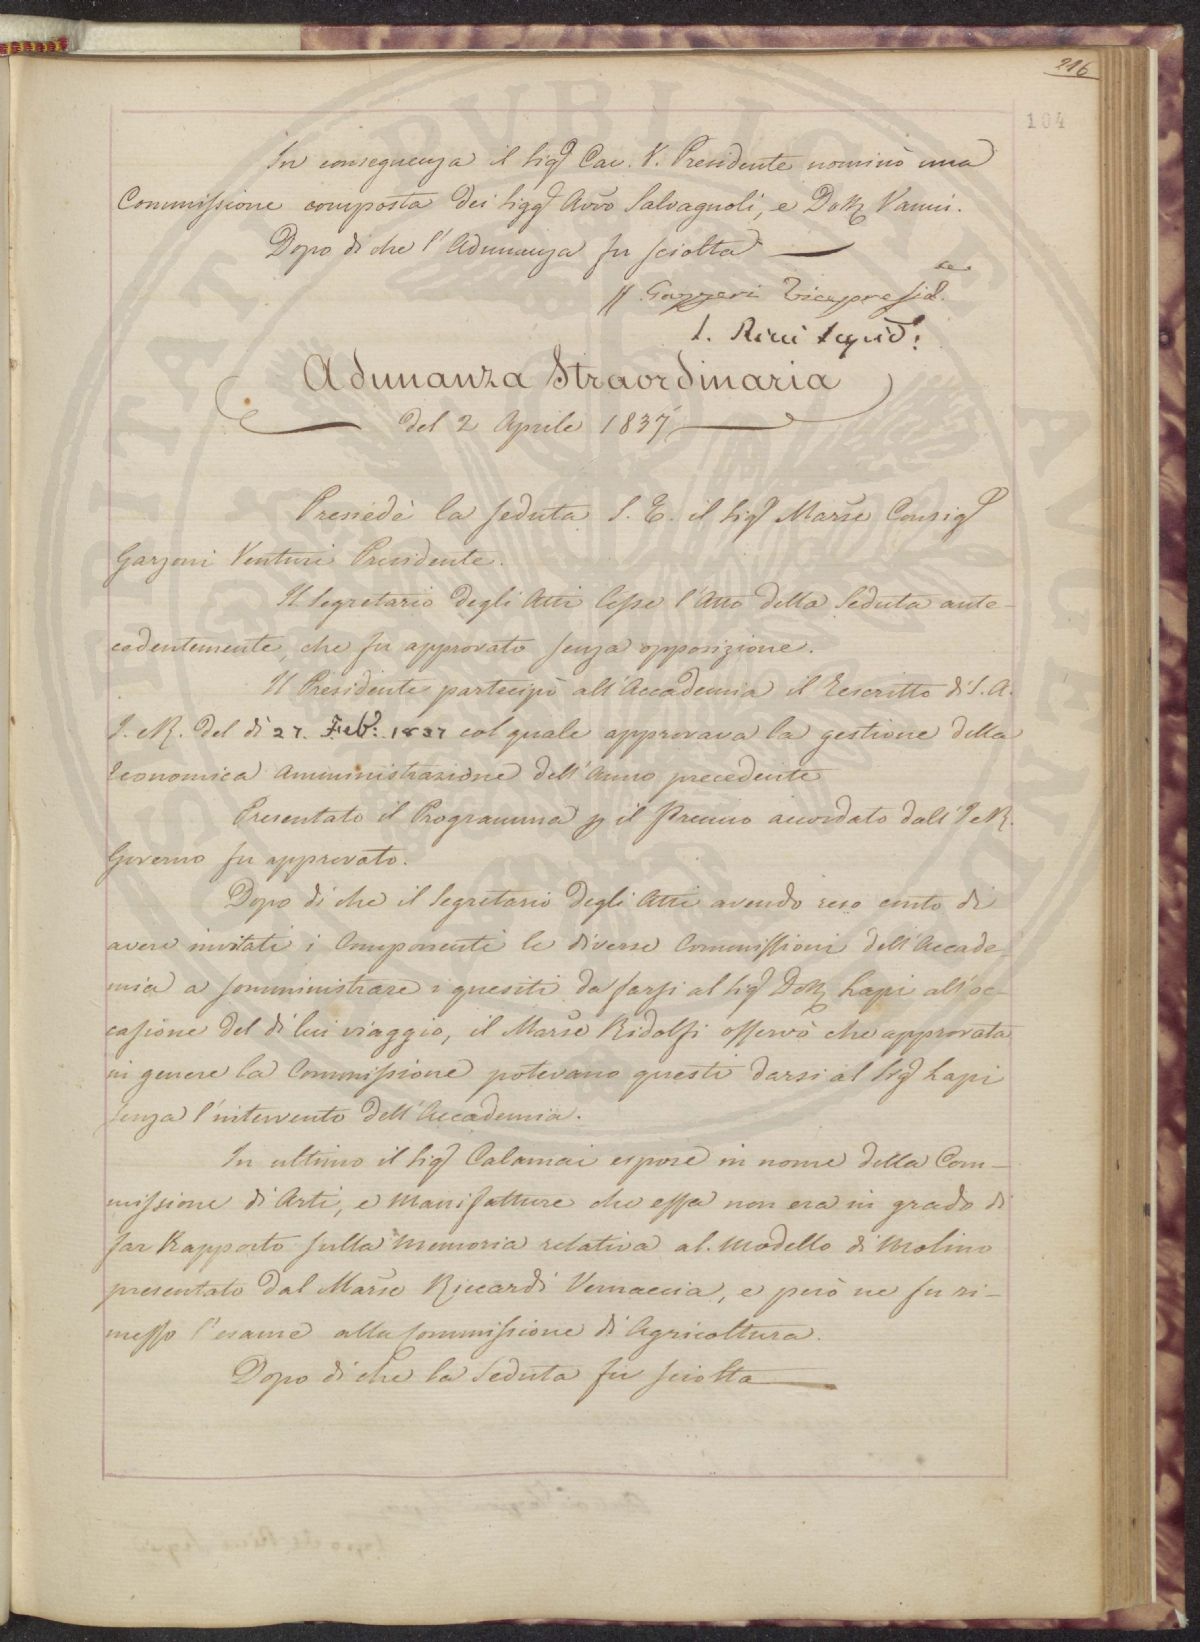 216
104
In conseguenza il Sig.r Cav. V. Presidente nominò una
Commissione composta dei Sigg.ri Avvo Salvagnoli, e Dott. Vanni.
Dopo di che l'Adunanza fu sciolta
Gazzeri Vicepresid.te
S. Ricci Segrio.
Adunanza Straordinaria
del 2 Aprile 1837
Presiedè la seduta S. E. il Sig.r Marse Consig.r
Garzoni Venturi Presidente.
Il Segretario degli Atti lesse l'Atto della Seduta ante-
cedentemente, che fu approvato senza opposizione.
Il Presidente partecipò all'Accademia il Rescritto di S. A.
I. e R. del dì 27. Feb.o 1837 col quale approvava la gestione della
Economica Amministrazione dell'Anno precedente
Presentato il Programma p il Premio accordato dall'I. e R.
Governo fu approvato.
Dopo di che il Segretario degli Atti avendo reso conto di
avere invitati i Componenti le diverse Commissioni dell'Accade-
mia a somministrare i quesiti da farsi al Sig.r Dott. Lapi all'oc-
casione del di lui viaggio, il Marse Ridolfi osservò che approvata
in genere la Commissione potevano questi darsi al Sig.r Lapi
senza l'intervento dell'Accademia.
In ultimo il Sig.r Calamai espose in nome della Com-
missione di Arti, e Manifatture che essa non era in grado di
far Rapporto sulla Memoria relativa al Modello di Molino
presentato dal Marse Riccardi Vernaccia, e però ne fu ri-
messo l'esame alla Commissione di Agricoltura.
Dopo di che la Seduta fu sciolta